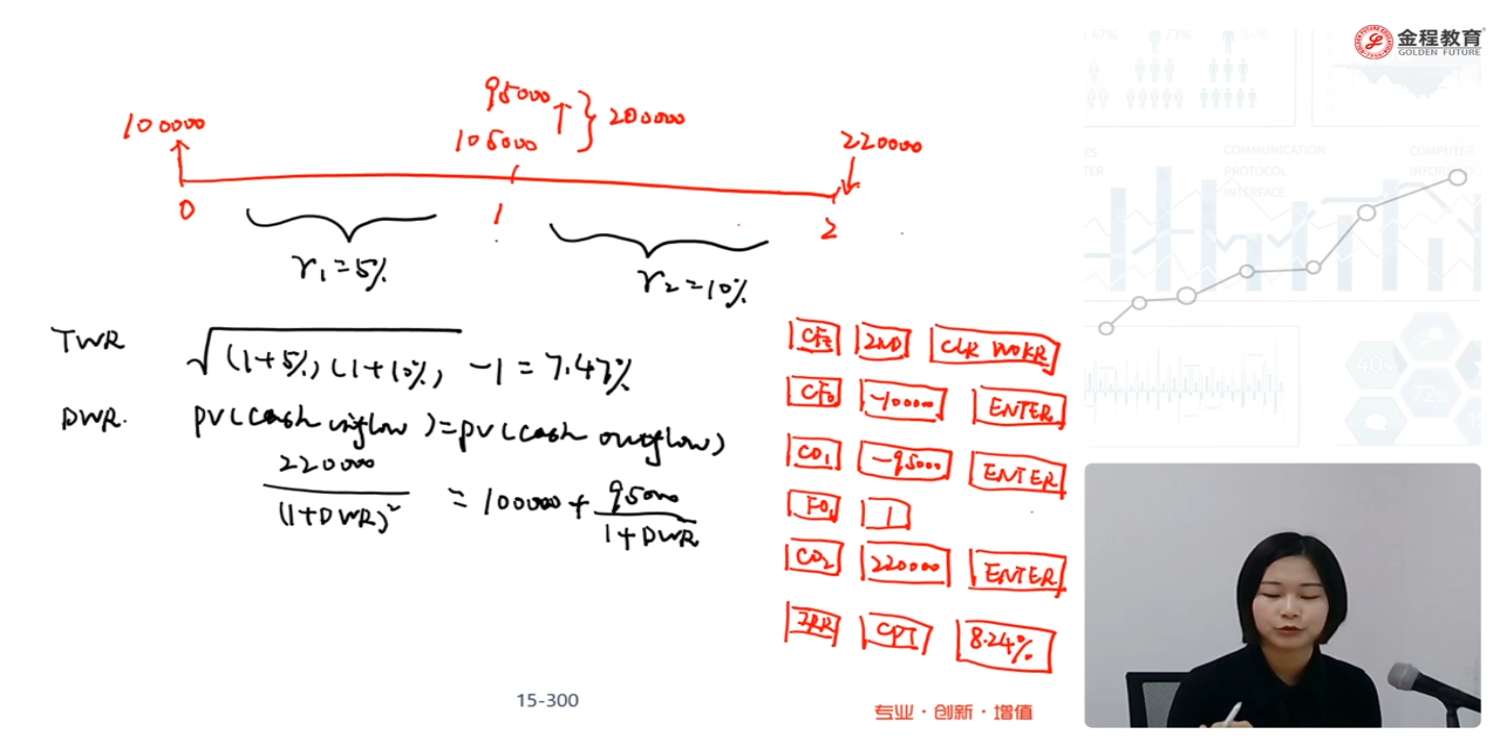 金程教育
GOLDEN FUTURE
95000
100000
105000
200000
220000
0
1
2
r₁=5%
r₂=10%
TWR √(1+5%)(1+10%) -1=7.47%
DWR. PV(cash inflow)=PV(cash outflow)
220000/(1+DWR)² = 100000+ 95000/1+DWR
2ND CLR WOKR
CF₀ -100000 ENTER
C01 -95000 ENTER
F01 1
C02 220000 ENTER
IRR CPT 8.24%
COMMUNICATION
PROTOCOL
INTERFACE
COMPUTER
15-300
专业·创新·增值